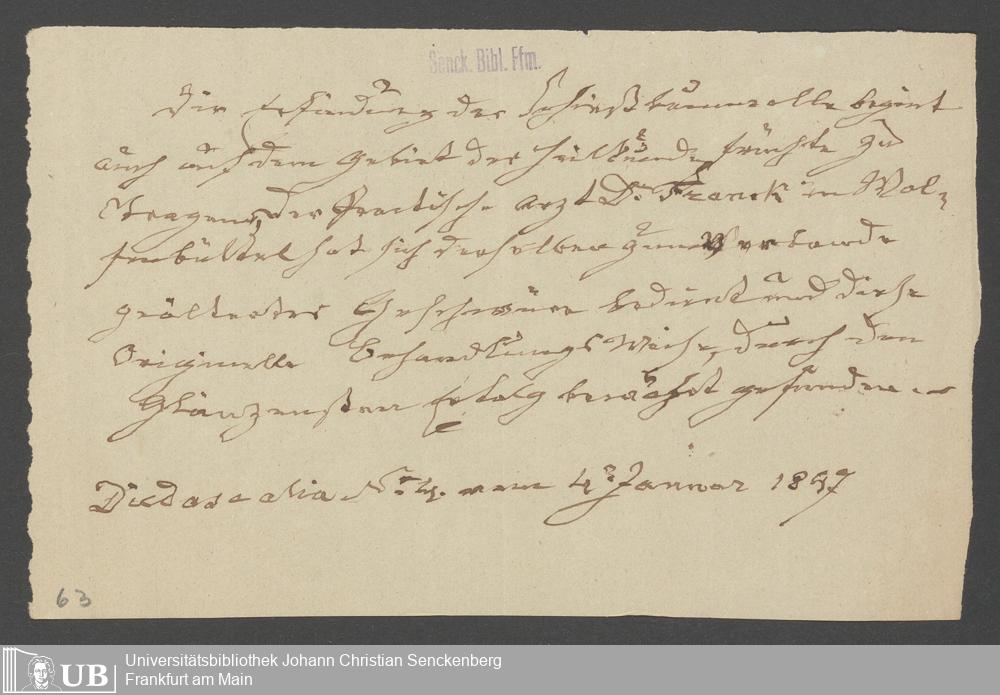 Senck. Bibl. Ffm.
Die Erfindung der Schießbaumwolle begint
auch auf dem Gebiet der Heilkunde Früchte zu
Tragen, der Practische Arzt Dr. Franck in Wol-
fenbüttel hat sich derselben zum Verbande
gealterter Geschwüre bedient und diese
Originelle Behandlungs Weise, durch den
Glänzensten Erfolg bewährt gefunden
Didascalia Nr. 4. vom 4n Januar 1847
63
UB
Universitätsbibliothek Johann Christian Senckenberg
Frankfurt am Main